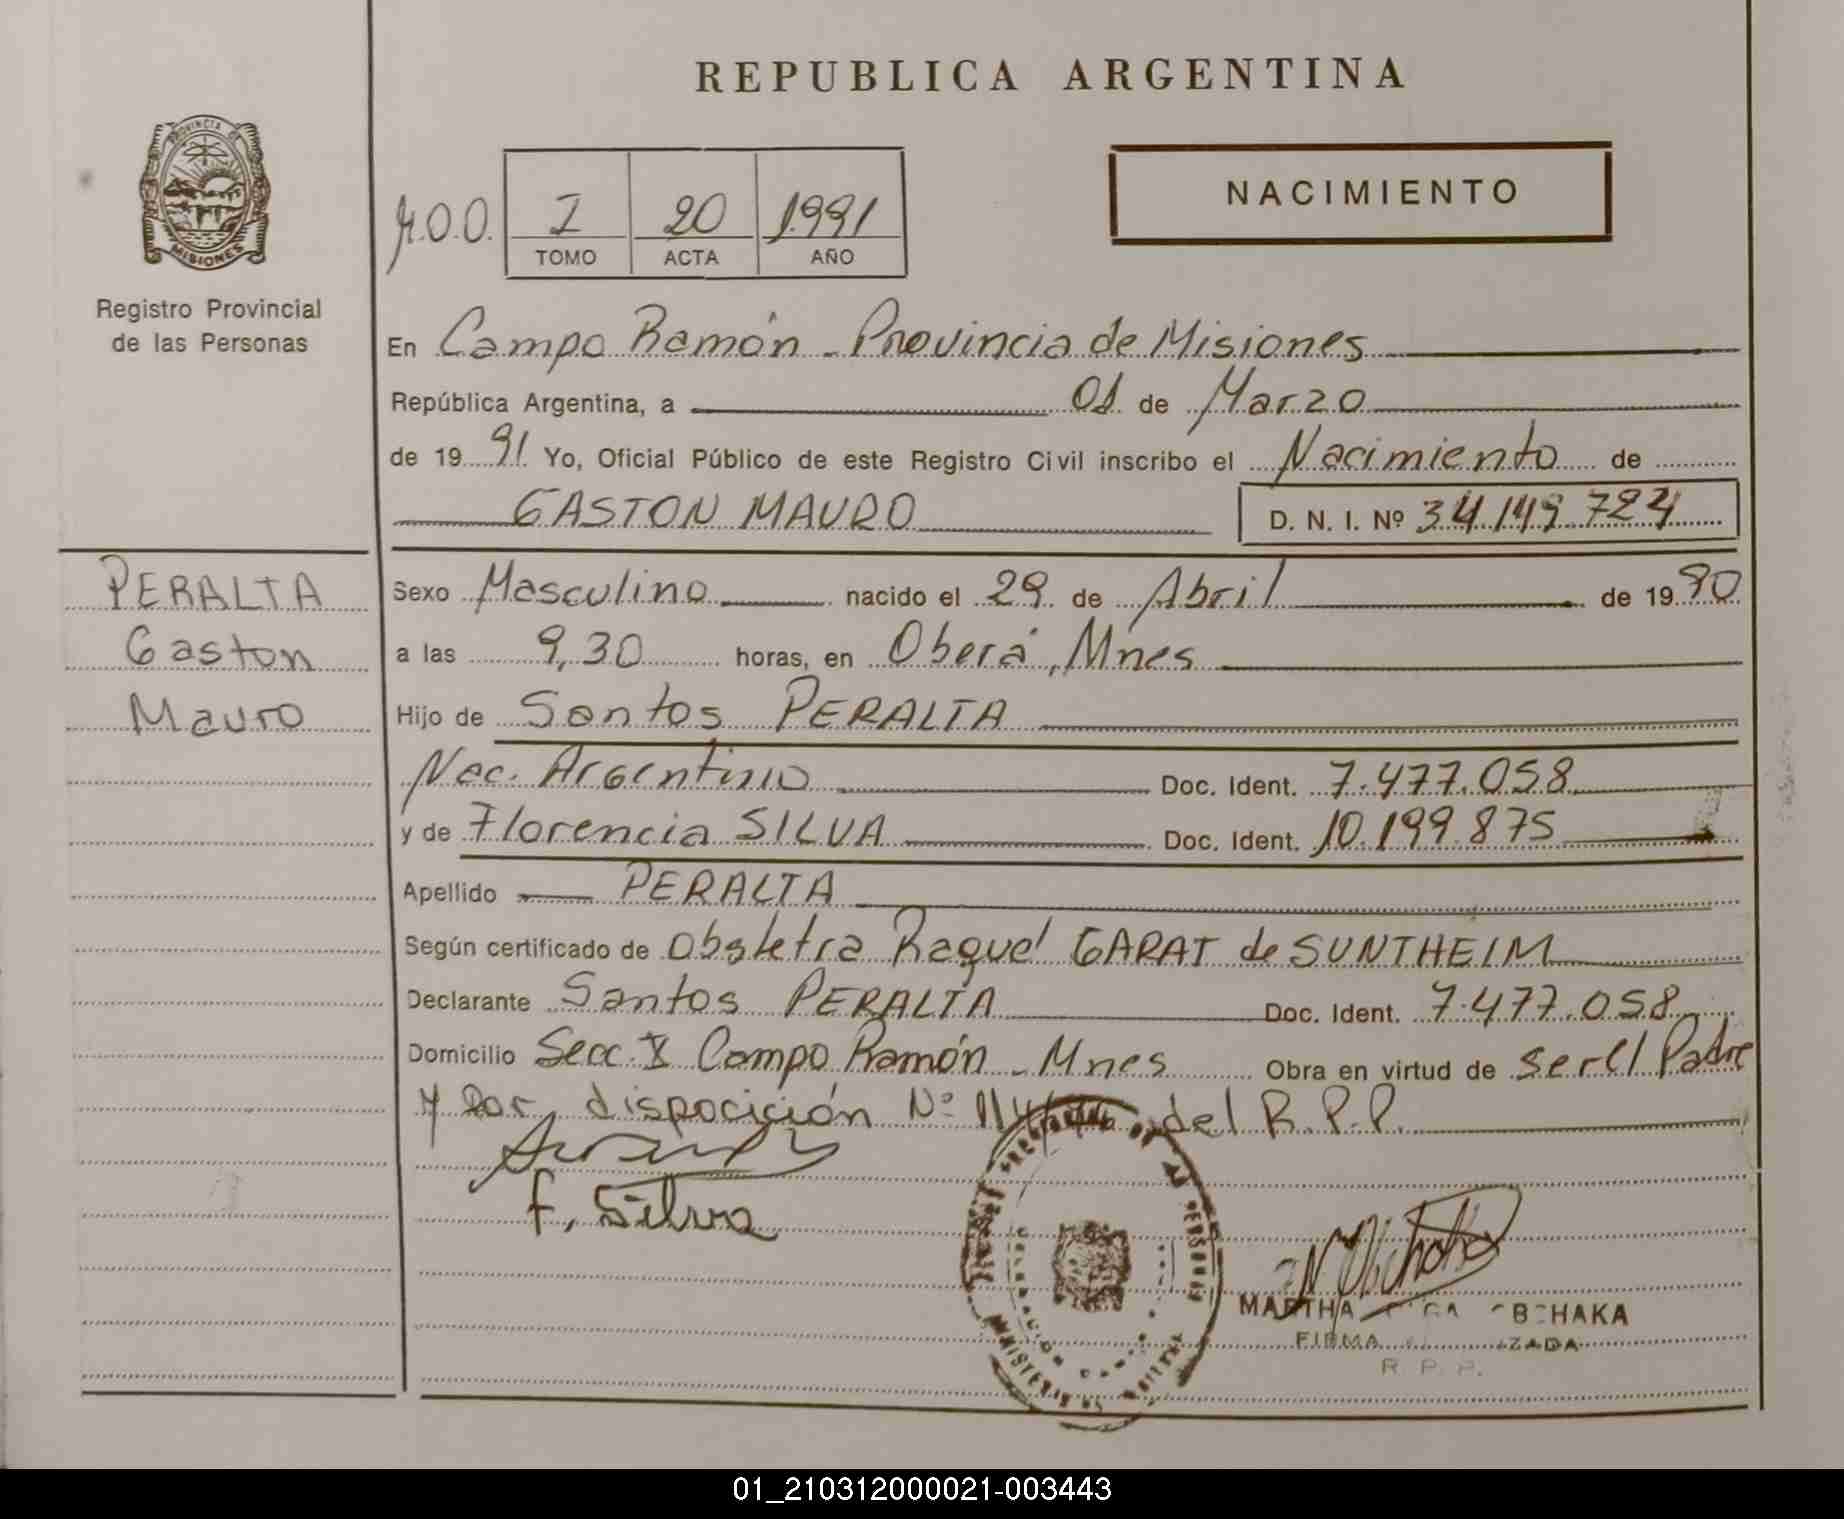 REPUBLICA ARGENTINA
PROVINCIA DE
MISIONES
Registro Provincial
de las Personas
I 20 1991
TOMO ACTA AÑO
NACIMIENTO
En Campo Ramón - Provincia de Misiones
República Argentina, a 01 de Marzo
de 1991 Yo, Oficial Público de este Registro Civil inscribo el Nacimiento de
GASTON MAURO D. N. I. Nº 34.149.724
PERALTA
Gaston
Mauro
Sexo Masculino nacido el 29 de Abril de 1990
a las 9,30 horas, en Oberá, Mnes
Hijo de Santos PERALTA
Nac. Argentino Doc. Ident. 7.477.058
y de Florencia SILVA Doc. Ident. 10.199.875
Apellido PERALTA
Según certificado de Obstetra Raquel GARAT de SUNTHEIM
Declarante Santos PERALTA Doc. Ident. 7.477.058
Domicilio Secc. Campo Ramón - Mnes Obra en virtud de ser el Padre
y por disposición Nº del R.P.P.
F. Silva
MARTHA
FIRMA
R. P. P.
01_210312000021-003443